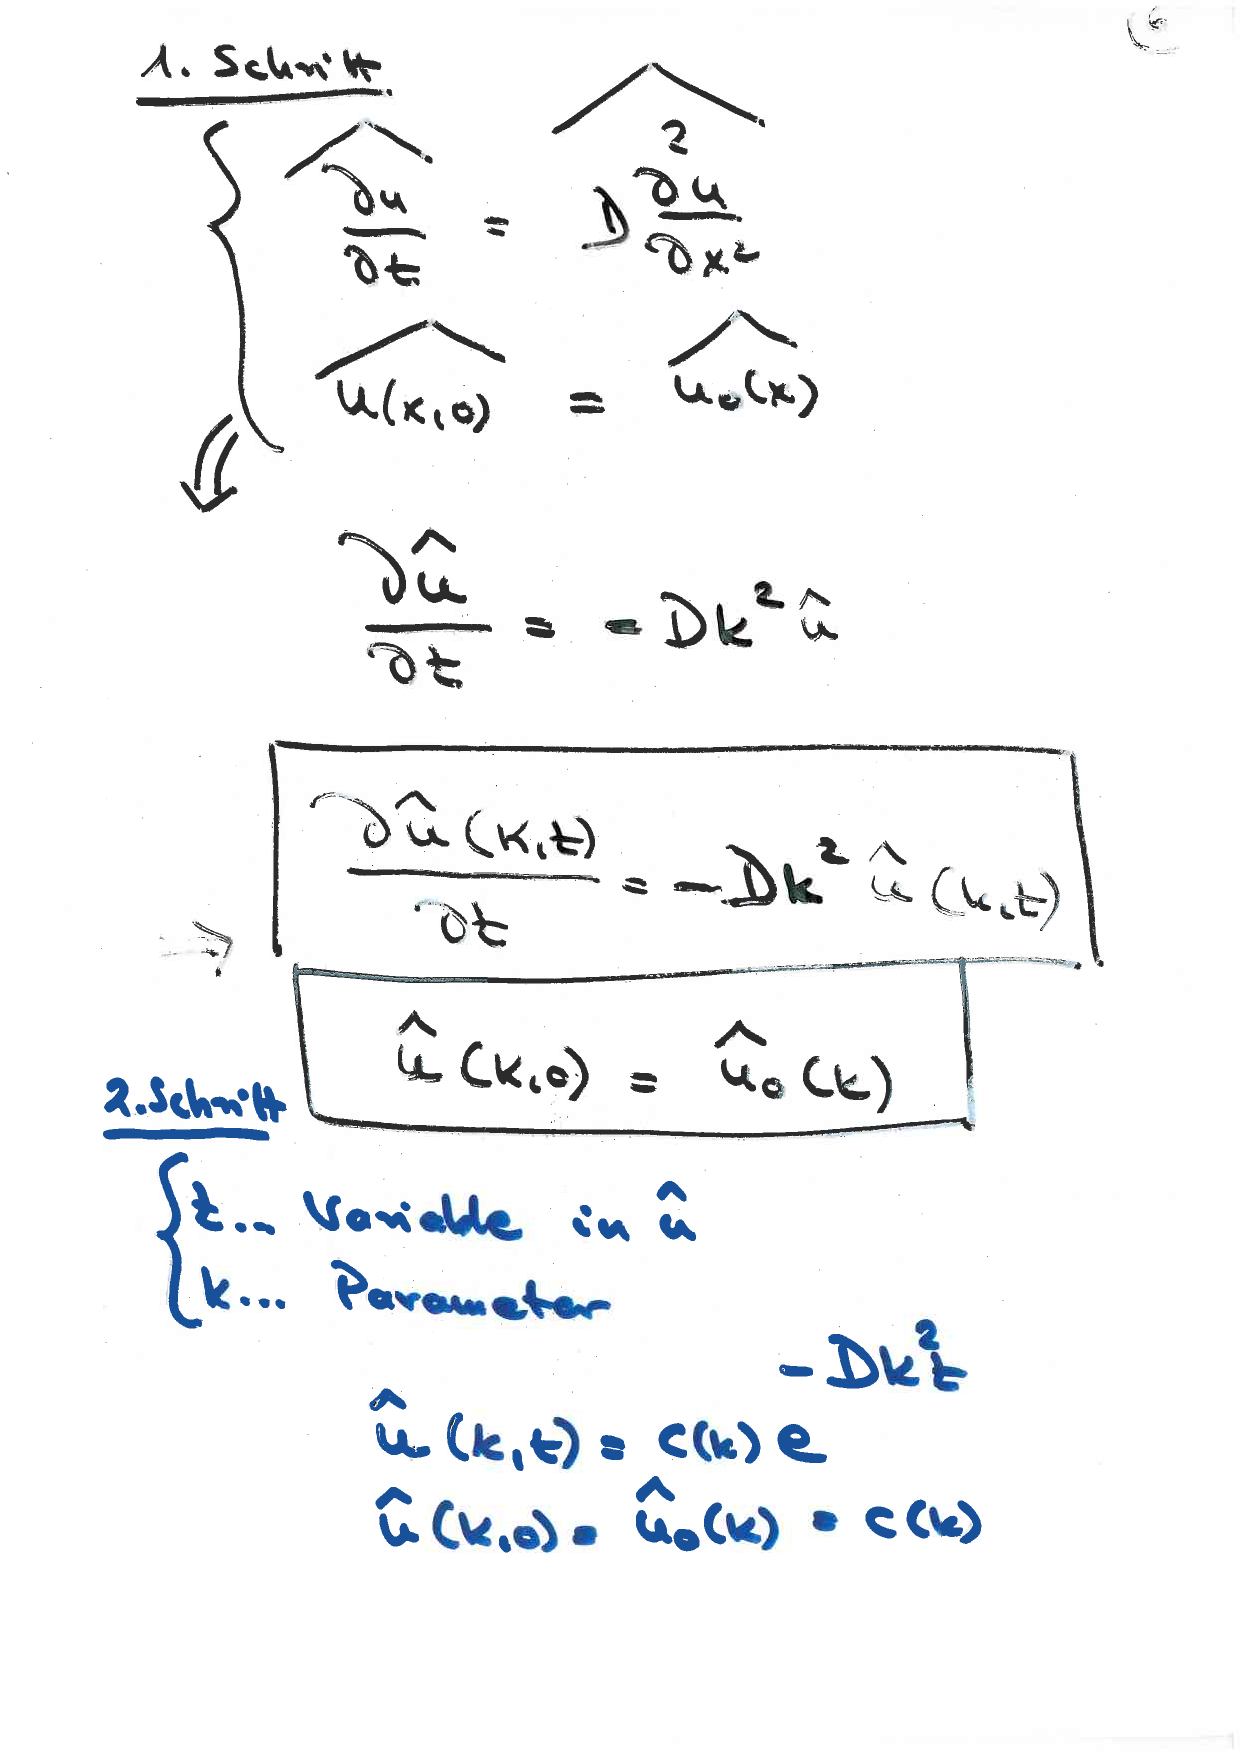 6
1. Schritt
∂u/∂t = D ∂²u/∂x²
u(x,0) = u₀(x)
⇓
∂û/∂t = -Dk² û
→ ∂û(k,t)/∂t = -Dk² û(k,t)
û(k,0) = û₀(k)
2. Schritt
t... Variable in û
k... Parameter
û(k,t) = c(k) e^(-Dk²t)
û(k,0) = û₀(k) = c(k)